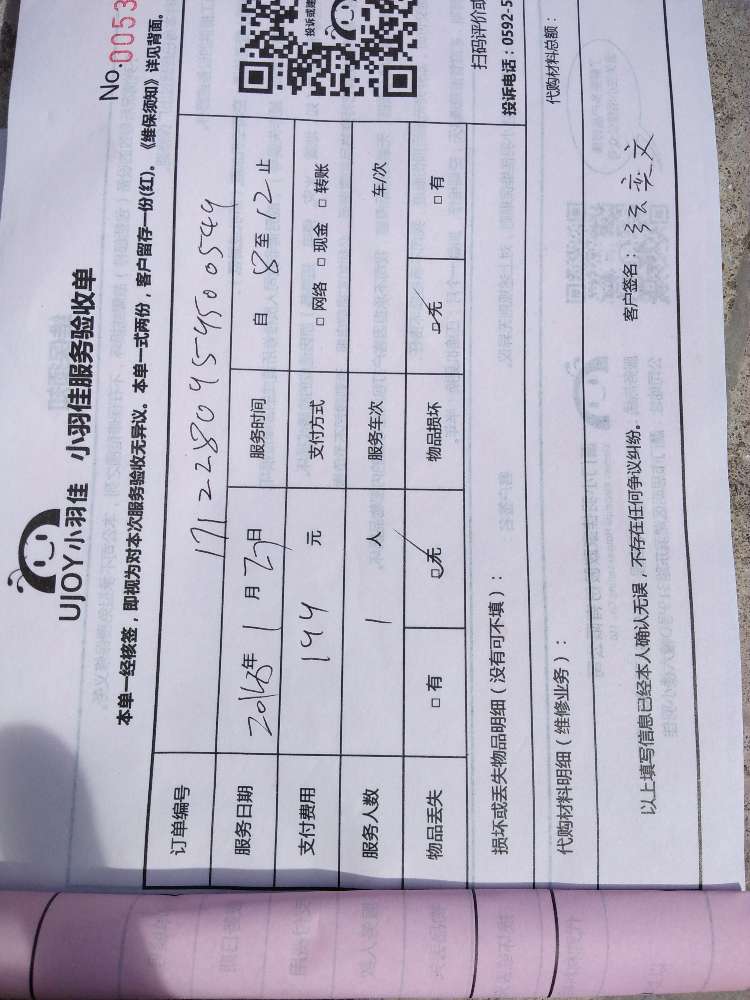 No.0053
UJOY小羽佳 小羽佳服务验收单
本单一经核签，即视为对本次服务验收无异议。本单一式两份，客户留存一份(红)。《维保须知》详见背面。
订单编号 1712280954500549
服务日期 2018年 1 月 23日 服务时间 自 8 至 12 止
支付费用 144 元 支付方式 □ 网络 □ 现金 □ 转账
服务人数 1 人 服务车次 车/次
物品丢失 □ 有 ☑无 物品损坏 ☑无 □ 有
损坏或丢失物品明细（没有可不填）：
扫码评价或
投诉电话：0592-5
代购材料明细（维修业务）： 代购材料总额：
以上填写信息已经本人确认无误，不存在任何争议纠纷。 客户签名：张奕文